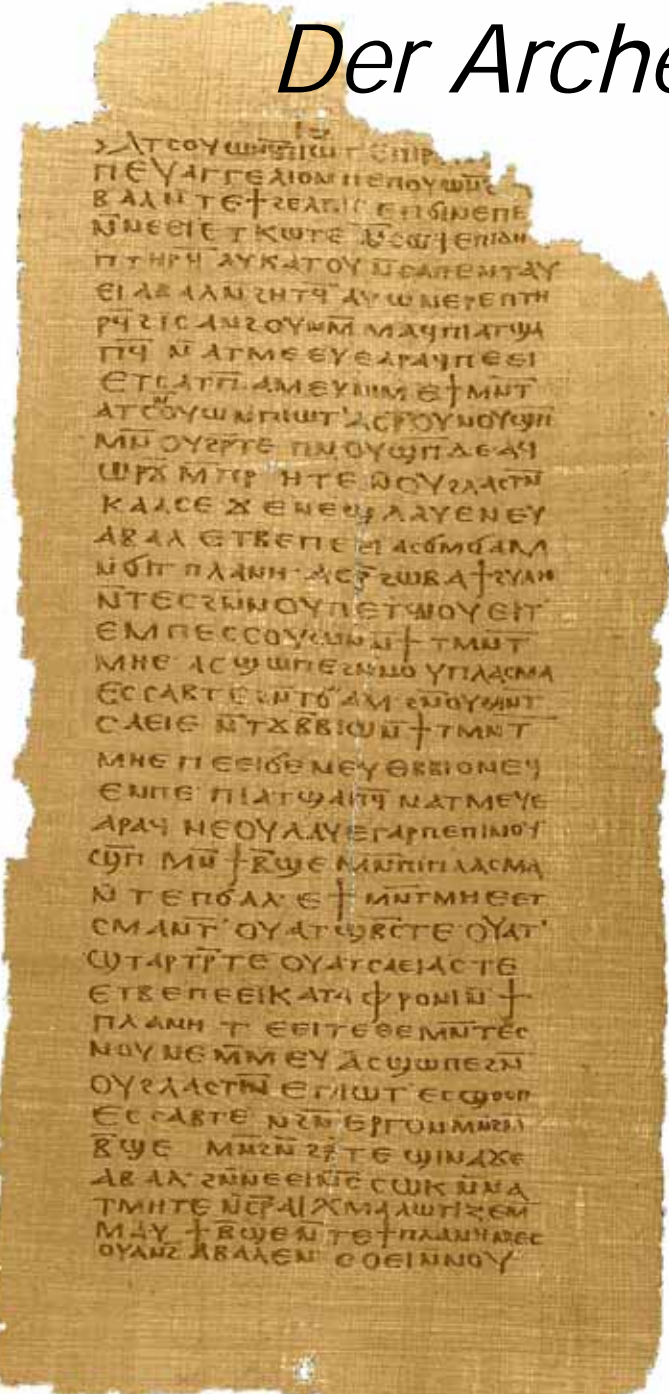 Der Arche
ⲡⲉⲩⲁⲅⲅⲉⲗⲓⲟⲛ ⲡⲉ ⲡⲟⲩⲱⲛϩ
ⲃⲁⲗ ⲛ̄ⲧⲉ ϯϩⲉⲗⲡⲓⲥ ⲉⲡϭⲓⲛⲉ ⲡⲉ
ⲛ̄ⲛⲉⲉⲓ ⲉⲧⲕⲱⲧⲉ ⲛ̄ⲥⲱϥ ⲉⲡⲓⲇⲏ
ⲡⲧⲏⲣϥ ⲁⲩⲕⲁⲧⲟⲩ ⲛ̄ⲥⲁ ⲡⲉⲛⲧⲁⲩ
ⲉⲓ ⲁⲃⲁⲗ ⲛ̄ϩⲏⲧϥ̄ ⲁⲩⲱ ⲛⲉⲣⲉ ⲡⲧⲏ
ⲣϥ̄ ϩⲓⲥⲁⲛϩⲟⲩⲛ ⲙ̄ⲙⲁϥ ⲡⲓⲁⲧϣⲁ
ⲡϥ̄ ⲛ̄ⲁⲧⲙⲉⲉⲩⲉ ⲁⲣⲁϥ ⲡⲉⲉⲓ
ⲉⲧⲥⲁⲧⲡ̄ ⲁⲙⲉⲩ ⲛⲓⲙ ⲉϯⲙⲛ̄ⲧ
ⲁⲧⲥⲟⲩⲱⲛ ⲡⲓⲱⲧ ⲁⲥⲣ̄ ⲟⲩⲛⲟⲩϣⲡ̄
ⲙⲛ̄ ⲟⲩϩⲣ̄ⲧⲉ ⲡⲛⲟⲩϣⲡ̄ ⲇⲉ ⲁϥ
ⲱⲣϫ̄ ⲙ̄ⲡⲣⲏⲧⲉ ⲛ̄ⲟⲩϩⲗⲁⲥⲧⲛ̄
ⲕⲁⲁⲥⲉ ϫⲉ ⲛⲉϣ ⲗⲁⲩⲉ ⲛⲉⲩ
ⲁⲃⲁⲗ ⲉⲧⲃⲉ ⲡⲉⲉⲓ ⲁⲥϭⲙϭⲁⲙ
ⲛ̄ϭⲓ ϯⲡⲗⲁⲛⲏ ⲁⲥⲣ̄ ϩⲱⲃ ⲁϯϩⲩⲗⲏ
ⲛ̄ⲧⲉⲥ ϩⲛ̄ⲛ ⲟⲩⲡⲉⲧϣⲟⲩⲉⲓⲧ
ⲉⲙⲡⲉⲥⲥⲟⲩⲱⲛ ⲛ̄ϯⲧⲙⲛ̄ⲧ
ⲙⲏⲉ ⲁⲥϣⲱⲡⲉ ϩⲛ̄ⲛⲟⲩⲡⲗⲁⲥⲙⲁ
ⲉⲥⲥⲁⲃⲧⲉ ϩⲛ̄ ⲧϭⲁⲙ ϩⲛ̄ⲛ ⲟⲩⲙⲛ̄ⲧ
ⲥⲁⲉⲓⲉ ⲛ̄ⲧϫⲃⲃⲓⲱ ⲛ̄ϯⲧⲙⲛ̄ⲧ
ⲙⲏⲉ ⲡⲉⲉⲓ ϭⲉ ⲛⲉⲩⲑⲃⲃⲓⲟ ⲛⲉϥ
ⲉⲛ ⲡⲉ ⲡⲓⲁⲧϣⲁⲡϥ̄ ⲛ̄ⲁⲧⲙⲉⲩⲉ
ⲁⲣⲁϥ ⲛⲉⲟⲩⲗⲁⲩⲉ ⲅⲁⲣ ⲡⲉ ⲡⲓⲛⲟⲩ
ϣⲡ̄ ⲙⲛ̄ ϯⲃ̄ϣⲉ ⲙⲛ̄ ⲡⲓⲡⲗⲁⲥⲙⲁ
ⲛ̄ⲧⲉ ⲡϭⲁⲗ ⲉϯⲙⲛ̄ⲧⲙⲏⲉ ⲉⲧ
ⲥⲙⲁⲛⲧ̄ ⲟⲩⲁⲧϣⲃ̄ⲥⲧⲉ ⲟⲩⲁⲧ
ϣⲧⲁⲣⲧⲣ̄ ⲧⲉ ⲟⲩⲁⲧⲥⲁⲉⲓⲁⲥ ⲧⲉ
ⲉⲧⲃⲉ ⲡⲉⲉⲓ ⲕⲁⲧⲁⲫⲣⲟⲛⲓ ⲛ̄ϯ
ⲡⲗⲁⲛⲏ ⲧⲉⲉⲓ ⲧⲉ ⲑⲉ ⲙⲛ̄ⲧⲉⲥ
ⲛⲟⲩⲛⲉ ⲙ̄ⲙⲉⲩ ⲁⲥϣⲱⲡⲉ ϩⲛ̄ⲛ
ⲟⲩϩⲗⲁⲥⲧⲛ̄ ⲉⲡⲓⲱⲧ ⲉⲥϣⲟⲟⲡ
ⲉⲥⲥⲁⲃⲧⲉ ⲛ̄ϩⲛ̄ⲉⲣⲅⲟⲛ ⲙⲛ̄ ϩⲛ̄
ⲃ̄ϣⲉ ⲙⲛ̄ ϩⲛ̄ϩⲣ̄ⲧⲉ ϣⲓⲛⲁ ϫⲉ
ⲁⲃⲁⲗ ϩⲛ̄ ⲛⲉⲉⲓ ⲛ̄ⲥⲥⲱⲕ ⲛ̄ⲛⲁ
ⲧⲙⲏⲧⲉ ⲛ̄ⲥⲣ̄ⲁⲓⲭⲙⲁⲗⲱⲧⲓⲍⲉ ⲙ̄
ⲙⲁⲩ ϯⲃ̄ϣⲉ ⲛ̄ⲧⲉ ϯⲡⲗⲁⲛⲏ ⲛⲉⲥ
ⲟⲩⲁⲛϩ ⲁⲃⲁⲗ ⲉⲛ ⲥⲟⲉⲓ ⲛ̄ⲛⲟⲩ